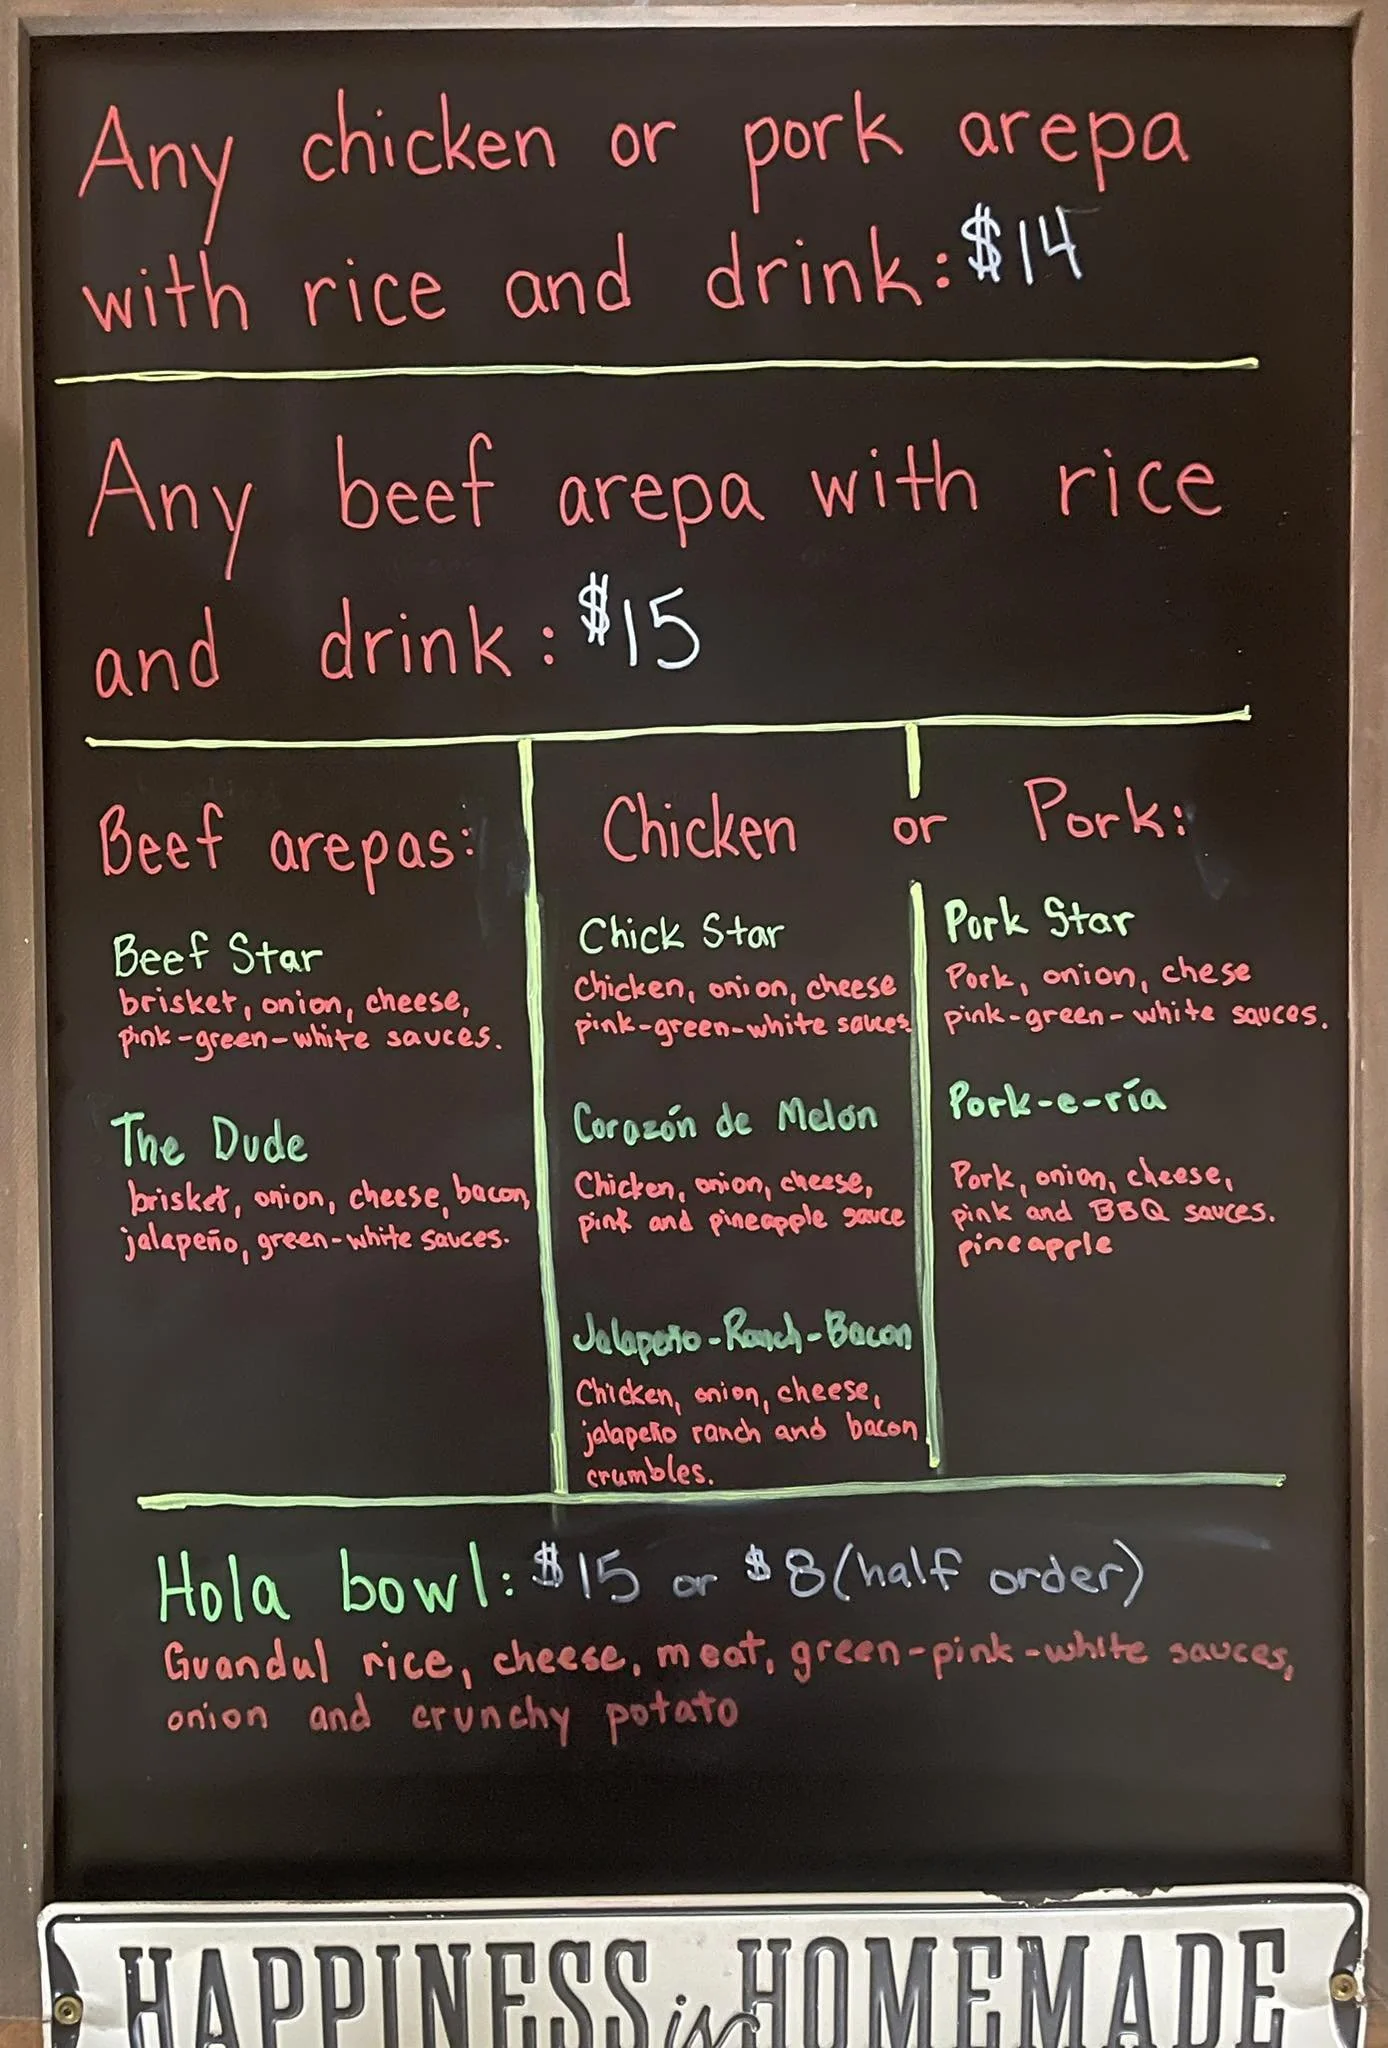 Any chicken or pork arepa
with rice and drink: $14
Any beef arepa with rice
and drink: $15
Beef arepas:
Beef Star
brisket, onion, cheese,
pink-green-white sauces.
The Dude
brisket, onion, cheese, bacon,
jalapeño, green-white sauces.
Chicken or Pork:
Chick Star
Chicken, onion, cheese
pink-green-white sauces
Corazón de Melón
Chicken, onion, cheese,
pink and pineapple sauce
Jalapeño-Ranch-Bacon
Chicken, onion, cheese,
jalapeño ranch and bacon
crumbles.
Pork Star
Pork, onion, chese
pink-green-white sauces.
Pork-e-ría
Pork, onion, cheese,
pink and BBQ sauces.
pineapple
Hola bowl: $15 or $8 (half order)
Guandul rice, cheese, meat, green-pink-white sauces,
onion and crunchy potato
HAPPINESS is HOMEMADE